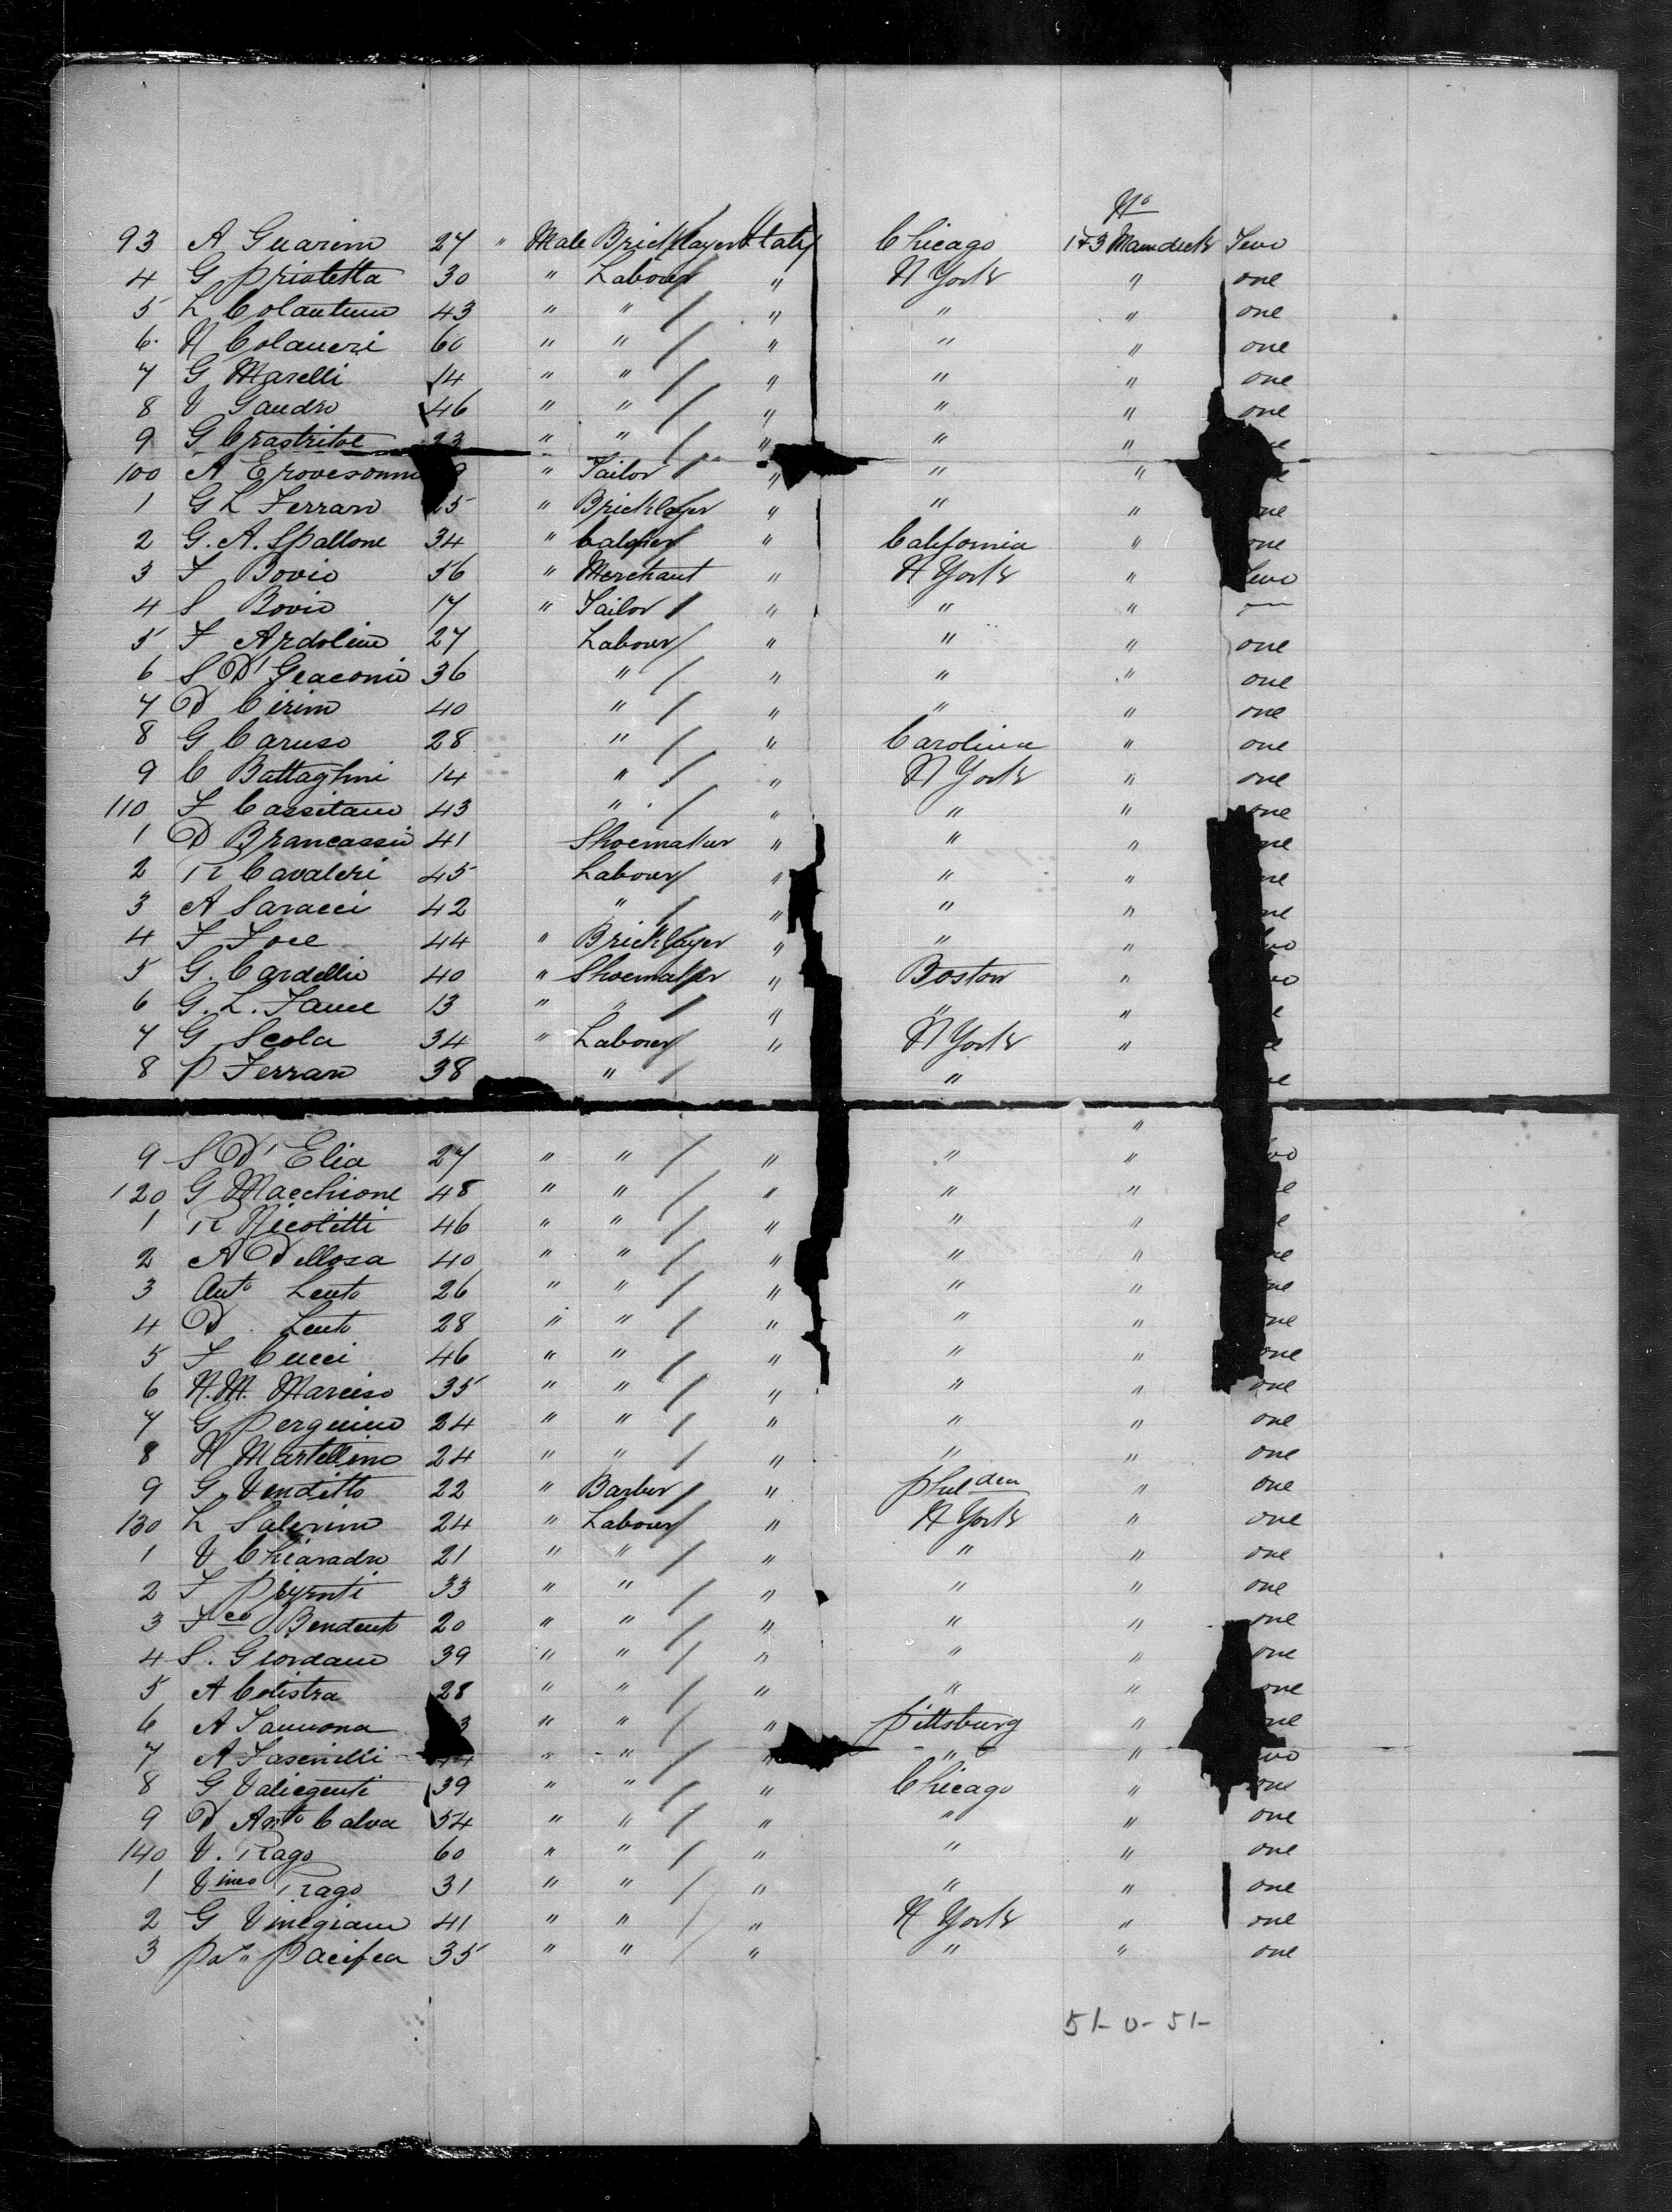 No
93 A Guarino 27 " Male Bricklayer Italy Chicago 1&3 Maindeck Two
4 G Prioletta 30 " Labour " N York " one
5 L Colantuno 43 " " " " " one
6 N Colaneri 60 " " " " " one
7 G Marelli 14 " " " " " one
8 V Gaudio 46 " " " " " one
9 G 23 " " " " "
100 A " Tailor " " "
1 G L Ferraro 25 " Bricklayer " " " one
2 G. A. Spallone 34 " " California " one
3 F Bovio 56 " Merchant " N York " Two
4 S Bovio 17 " Tailor " " " —
5 F Ardolino 27 Labour " " " one
6 S D'Geaconio 36 " " " " one
7 D Cirino 40 " " " " one
8 G Caruso 28 " " Carolina " one
9 C Battaglini 14 " " N York " one
110 F Cassitano 43 " " " " one
1 D Brancassio 41 Shoemaker " " " one
2 R Cavaleri 45 Labour " " " one
3 A Saracci 42 " " " " one
4 F 44 " Bricklayer " " "
5 G. Cardellio 40 " Shoemaker " Boston "
6 G. L. 13 " " " " "
7 G Scola 34 " Labour " N York "
8 P Ferraro 38 " " "
9 S D'Elia 27 " " " " "
120 G Macchione 48 " " " " "
1 R Nicoletti 46 " " " " "
2 A Dellosa 40 " " " " " one
3 Anto Lento 26 " " " " " one
4 D. Lento 28 " " " " " one
5 F Cucci 46 " " " " " one
6 N. M. Marciso 35 " " " " " one
7 G Perguino 24 " " " " " one
8 N Martellino 24 " " " " " one
9 G Venditto 22 " Barber " " one
130 L Salerino 24 " Labour " N York " one
1 V Chiaradio 21 " " " " " one
2 F 33 " " " " " one
3 Fco Bendento 20 " " " " " one
4 S. Giordano 39 " " " " " one
5 A Colistra 28 " " " " " one
6 A " " " Pittsburg " one
7 A " " " " "
8 G Valiegenti 39 " " " Chicago " one
9 D Anto Calva 54 " " " " " one
140 V. Rago 60 " " " " " one
1 Vinco Rago 31 " " " " " one
2 G 41 " " " N York " one
3 Pacifca 35 " " " " " one
51-0-51-